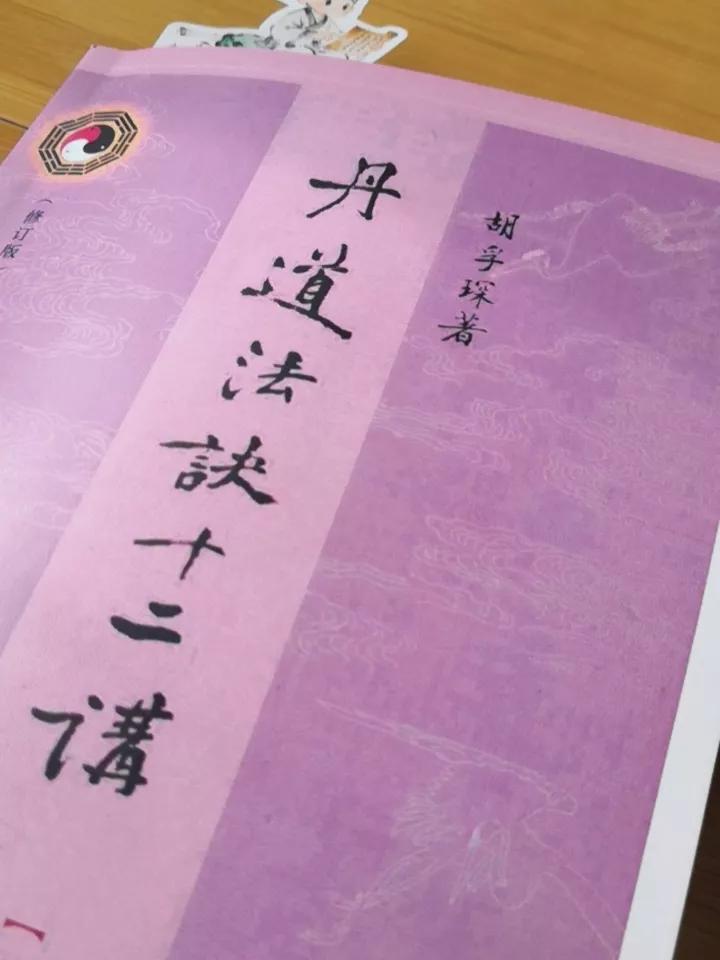 丹道法訣十二講
胡孚琛著
（修订版
【